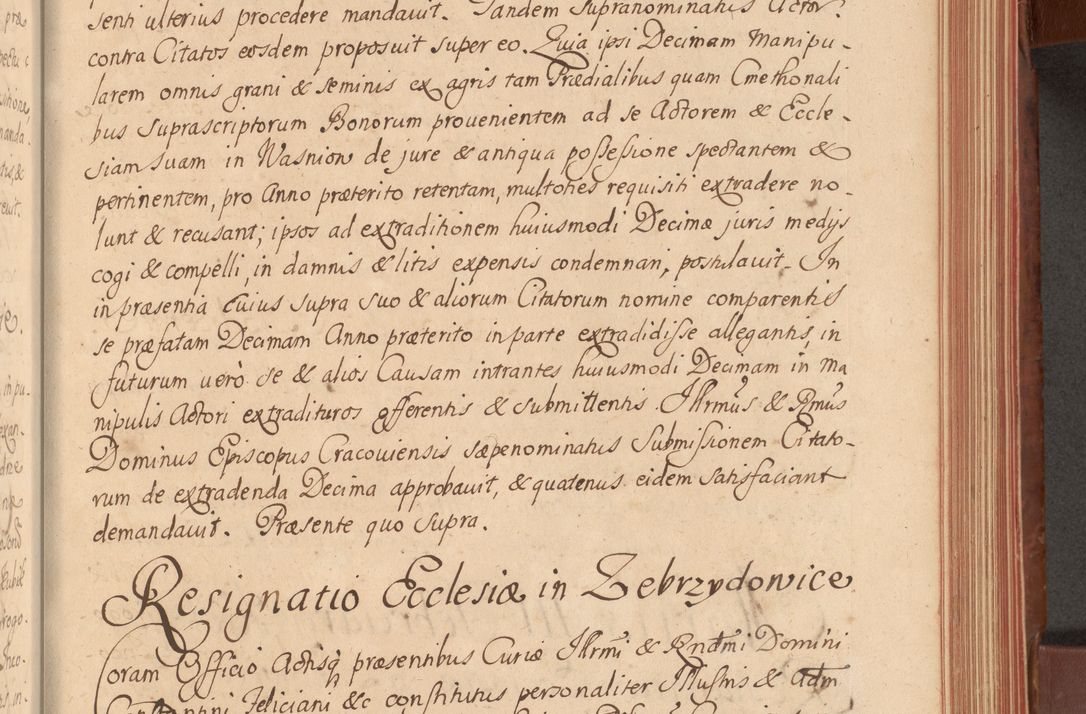 senti ulterius procedere mandavit. Tandem supranominatus Actor
contra Citatos eosdem proposuit super eo. Quia ipsi Decimam Manipu-
larem omnis grani & seminis ex agris tam Prædialibus quam Cmethonali
bus suprascriptorum Bonorum provenientem ad se Actorem & Eccle-
siam suam in Wasniow de jure & antiqua possessione spectantem &
pertinentem, pro Anno præterito retentam, multoties requisiti extradere no-
lunt & recusant; ipsos ad extraditionem huiusmodi Decimæ juris medijs
cogi & compelli, in damnis & litis expensis condemnari, postulavit. In
in præsentia cuius supra suo & aliorum Citatorum nomine comparentis
se præfatam Decimam Anno præterito in parte extradidisse allegantis, in
futurum verò se & alios Causam intrantes huiusmodi Decimam in Ma
nipulis Actori extradituros offerentis & submittentis. Illrmus & Rmus
Dominus Episcopus Cracoviensis sæpenominatus submissionem Citato-
rum de extradenda Decima approbavit, & quatenus eidem satisfaciant
demandavit. Præsente quo supra.
Resignatio Ecclesiæ in Zebrzydowice
Coram Officio Actisq præsentibus Curiæ Illrmi & Rndmi Domini
Feliciani &c constitutus personaliter Illustris & Adm